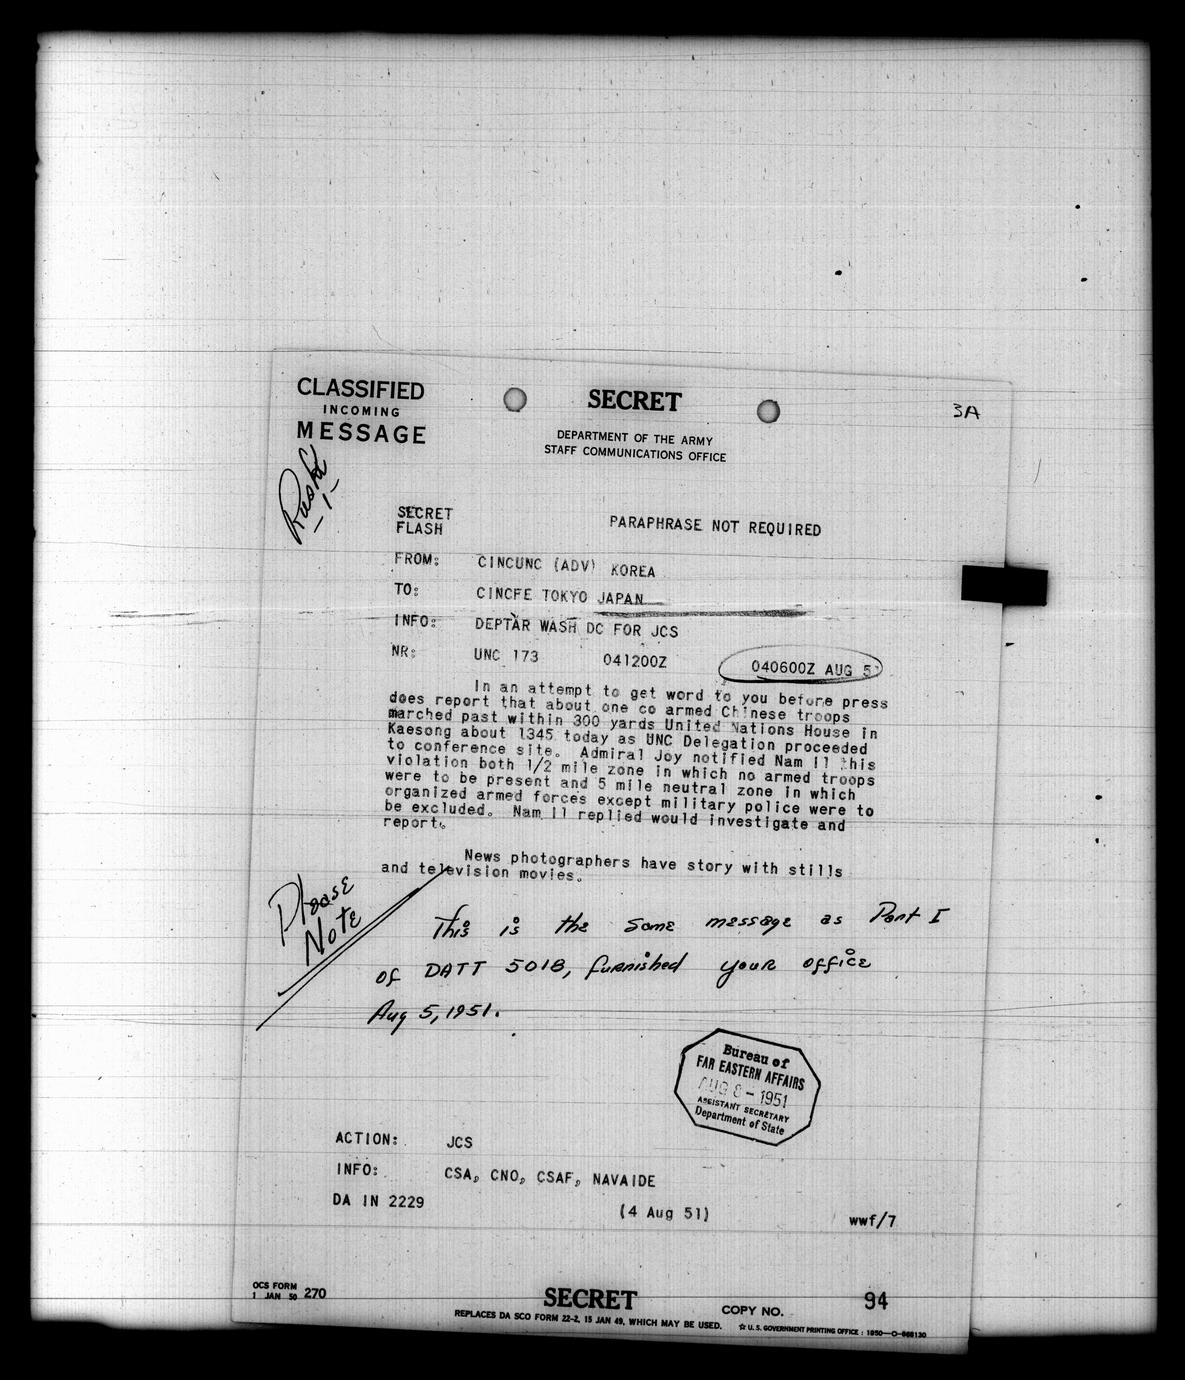 CLASSIFIED
INCOMING
MESSAGE
SECRET
3A
DEPARTMENT OF THE ARMY
STAFF COMMUNICATIONS OFFICE
Rusk
-1-
SECRET
FLASH
PARAPHRASE NOT REQUIRED
FROM: CINCUNC (ADV) KOREA
TO: CINCFE TOKYO JAPAN
INFO: DEPTAR WASH DC FOR JCS
NR: UNC 173 041200Z 040600Z AUG 5
In an attempt to get word to you before press
does report that about one co armed Chinese troops
marched past within 300 yards United Nations House in
Kaesong about 1345 today as UNC Delegation proceeded
to conference site. Admiral Joy notified Nam Il this
violation both 1/2 mile zone in which no armed troops
were to be present and 5 mile neutral zone in which
organized armed forces except military police were to
be excluded. Nam Il replied would investigate and
report.
News photographers have story with stills
and television movies.
Please
Note
This is the same message as Part I
of DATT 5018, furnished your office
Aug 5, 1951.
Bureau of
FAR EASTERN AFFAIRS
AUG 8 - 1951
ASSISTANT SECRETARY
Department of State
ACTION: JCS
INFO: CSA, CNO, CSAF, NAVAIDE
DA IN 2229 (4 Aug 51) wwf/7
OCS FORM
1 JAN 50 270
SECRET
COPY NO. 94
REPLACES DA SCO FORM 22-2, 15 JAN 49, WHICH MAY BE USED.
☆ U. S. GOVERNMENT PRINTING OFFICE : 1950—O-868130